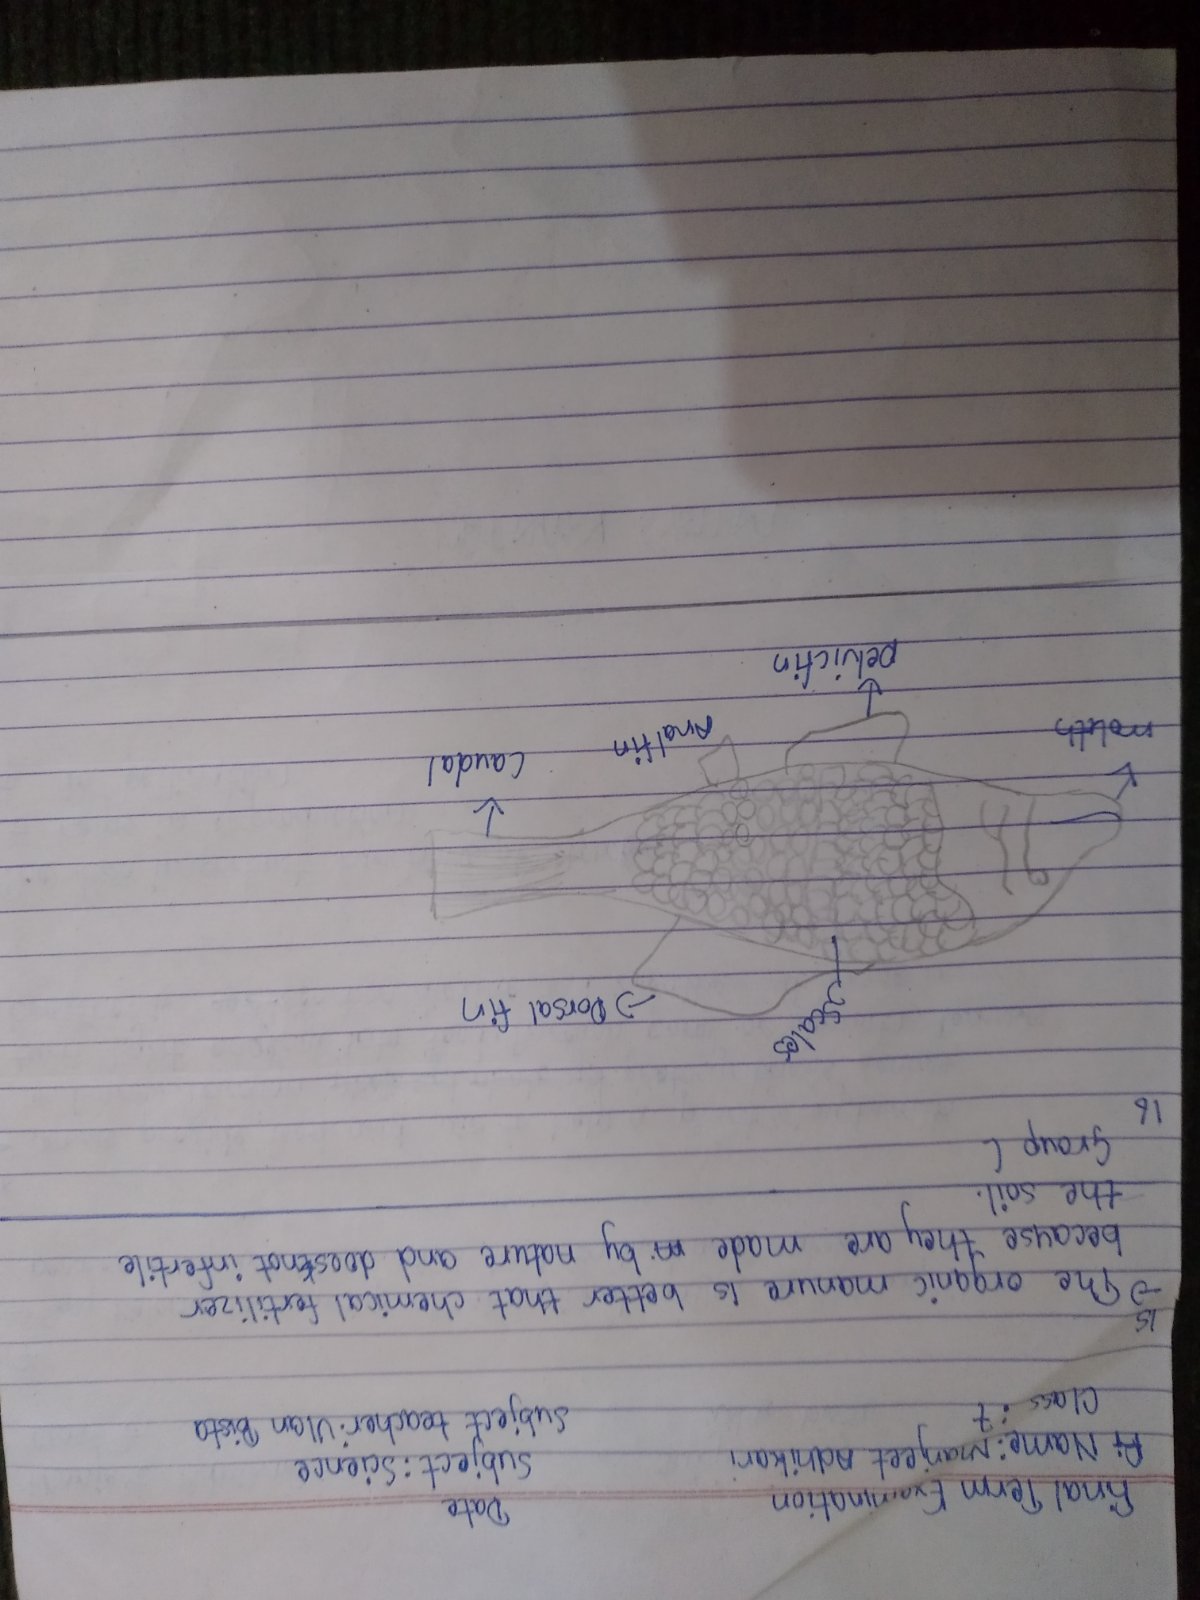 Final Term Examination Date
Name: Manjeet Adhikari Subject: Science
Class: 7 Subject teacher: Ulan Bista
15
→ The organic manure is better that chemical fertilizer
because they are made by nature and doesnot infertile
the soil.
Group C
16
Scales
→ Dorsal fin
Caudal
Anal fin
mouth
pelvicfin